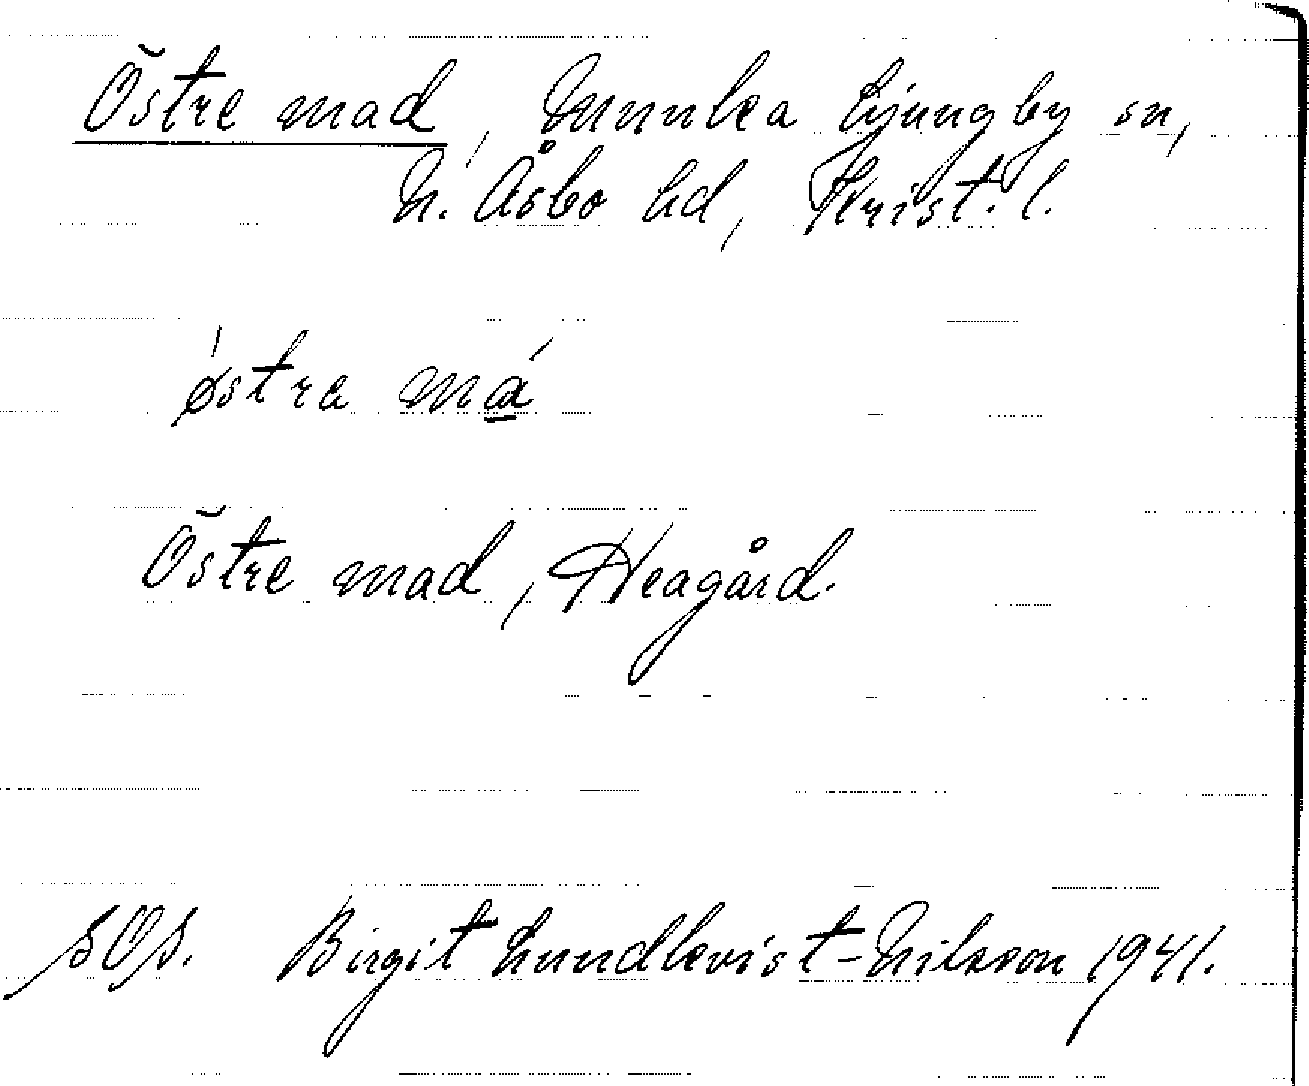 Östre mad, Munka Ljungby sn,
N. Åsbo hd, Krist. l.
ǿstra má
Östre mad, Heagård.
SOS. Birgit Lundkvist-Nilsson 1941.